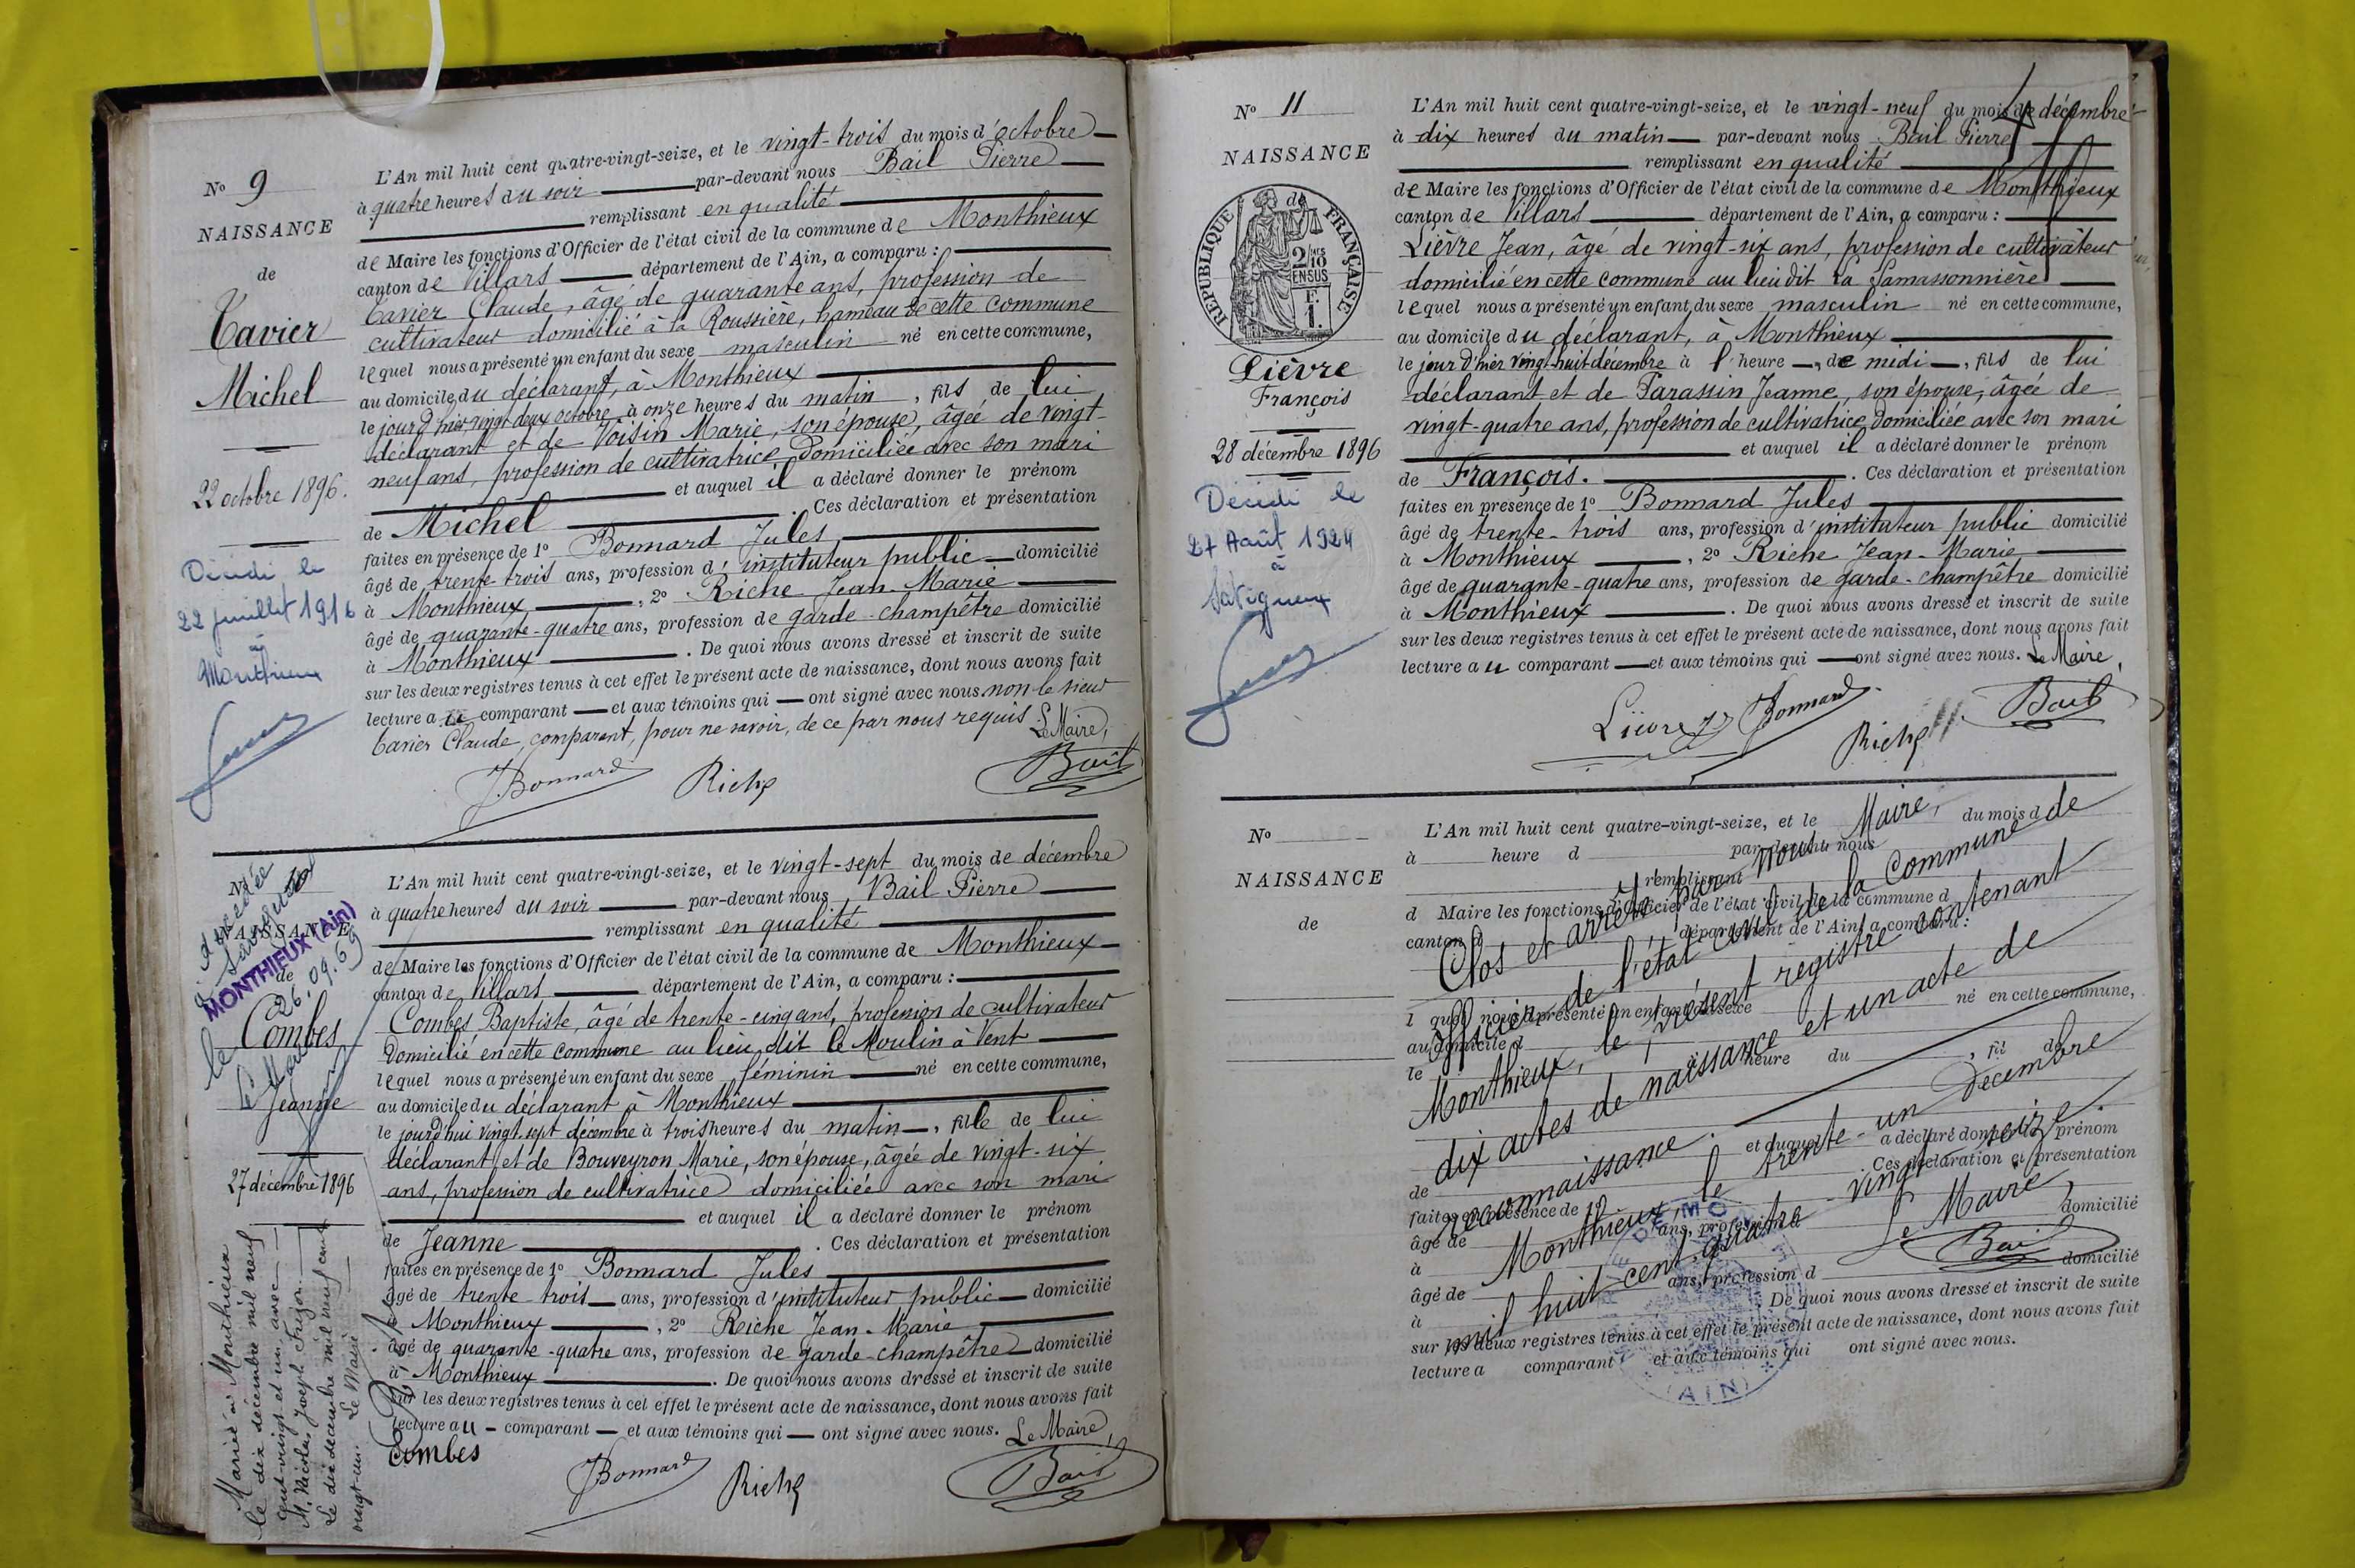 No 9
NAISSANCE
de
Tavier
Michel
22 octobre 1896.
Décédé le
22 juillet 1916
à
Monthieux
L'An mil huit cent quatre-vingt-seize, et le vingt-trois du mois d'octobre
à quatre heures du soir par-devant nous Bail Pierre
remplissant en qualité
de Maire les fonctions d'Officier de l'état civil de la commune de Monthieux
canton de Villars département de l'Ain, a comparu :
Tavier Claude, âgé de quarante ans, profession de
cultivateur domicilié à la Roussière, hameau de cette commune
lequel nous a présenté un enfant du sexe masculin né en cette commune,
au domicile du déclarant, à Monthieux
le jour d'hier, vingt-deux octobre à onze heures du matin, fils de lui
déclarant et de Voisin Marie, son épouse, âgée de vingt-
neuf ans, profession de cultivatrice domiciliée avec son mari
et auquel il a déclaré donner le prénom
de Michel. Ces déclaration et présentation
faites en présence de 1o Bonnard Jules
âgé de trente-trois ans, profession d'instituteur public domicilié
à Monthieux, 2o Riche Jean-Marie
âgé de quarante-quatre ans, profession de garde-champêtre domicilié
à Monthieux. De quoi nous avons dressé et inscrit de suite
sur les deux registres tenus à cet effet le présent acte de naissance, dont nous avons fait
lecture au comparant et aux témoins qui ont signé avec nous non le sieur
Tavier Claude, comparant, pour ne savoir, de ce par nous requis. Le Maire,
J. Bonnard Riche Bail
décédée
à Savigneux
No
NAISSANCE
MONTHIEUX (Ain)
de
le 26.09.69
Combes
Le Maire
Jeanne
27 décembre 1896
Mariée à Monthieux
le dix décembre mil neuf
cent vingt et un, avec
M. Nicolas Joseph
Le dix décembre mil neuf cent
vingt-un. Le Maire
L'An mil huit cent quatre-vingt-seize, et le vingt-sept du mois de décembre
à quatre heures du soir par-devant nous Bail Pierre
remplissant en qualité
de Maire les fonctions d'Officier de l'état civil de la commune de Monthieux
canton de Villars département de l'Ain, a comparu :
Combes Baptiste, âgé de trente-cinq ans, profession de cultivateur
domicilié en cette commune au lieu dit le Moulin à Vent
lequel nous a présenté un enfant du sexe féminin né en cette commune,
au domicile du déclarant à Monthieux
le jourd'hui vingt-sept décembre à trois heures du matin, fille de lui
déclarant et de Bouveyron Marie, son épouse, âgée de vingt-six
ans, profession de cultivatrice domiciliée avec son mari
et auquel il a déclaré donner le prénom
de Jeanne. Ces déclaration et présentation
faites en présence de 1o Bonnard Jules
âgé de trente-trois ans, profession d'instituteur public domicilié
à Monthieux, 2o Riche Jean-Marie
âgé de quarante-quatre ans, profession de garde-champêtre domicilié
à Monthieux. De quoi nous avons dressé et inscrit de suite
sur les deux registres tenus à cet effet le présent acte de naissance, dont nous avons fait
lecture au comparant et aux témoins qui ont signé avec nous. Le Maire,
Combes
J Bonnard Riche Bail
No 11
NAISSANCE
de
RÉPUBLIQUE FRANÇAISE
2/10 EN SUS
F. 1.
Lièvre
François
28 décembre 1896
Décédé le
27 Août 1924
à
Savigneux
L'An mil huit cent quatre-vingt-seize, et le vingt-neuf du mois de décembre
à dix heures du matin par-devant nous Bail Pierre
remplissant en qualité
de Maire les fonctions d'Officier de l'état civil de la commune de Monthieux
canton de Villars département de l'Ain, a comparu :
Lièvre Jean, âgé de vingt-six ans, profession de cultivateur
domicilié en cette commune au lieu dit la Samassonnière
lequel nous a présenté un enfant du sexe masculin né en cette commune,
au domicile du déclarant, à Monthieux
le jour d'hier vingt-huit décembre à l'heure de midi, fils de lui
déclarant et de Parassin Jeanne, son épouse, âgée de
vingt-quatre ans, profession de cultivatrice domiciliée avec son mari
et auquel il a déclaré donner le prénom
de François. Ces déclaration et présentation
faites en présence de 1o Bonnard Jules
âgé de trente-trois ans, profession d'instituteur public domicilié
à Monthieux, 2o Riche Jean-Marie
âgé de quarante-quatre ans, profession de garde-champêtre domicilié
à Monthieux. De quoi nous avons dressé et inscrit de suite
sur les deux registres tenus à cet effet le présent acte de naissance, dont nous avons fait
lecture au comparant et aux témoins qui ont signé avec nous. Le Maire,
Lièvre J Bonnard Riche Bail
No
NAISSANCE
de
L'An mil huit cent quatre-vingt-seize, et le du mois d
à heure d par-devant nous
remplissant
d Maire les fonctions d'Officier de l'état civil de la commune d
canton d département de l'Ain, a comparu :
l quel nous a présenté un enfant du sexe né en cette commune,
au domicile d
le heure du , fil de
et auquel a déclaré donner le prénom
de . Ces déclaration et présentation
faites en présence de 1o
âgé de ans, profession d domicilié
à
âgé de ans, profession d domicilié
à . De quoi nous avons dressé et inscrit de suite
sur les deux registres tenus à cet effet le présent acte de naissance, dont nous avons fait
lecture a comparant et aux témoins qui ont signé avec nous.
Clos et arrêté par nous Maire,
officier de l'état civil de la commune de
Monthieux, le présent registre contenant
dix actes de naissance et un acte de
reconnaissance.
Monthieux, le trente-un Décembre
mil huit cent quatre-vingt-seize.
Le Maire,
Bail
(AIN)